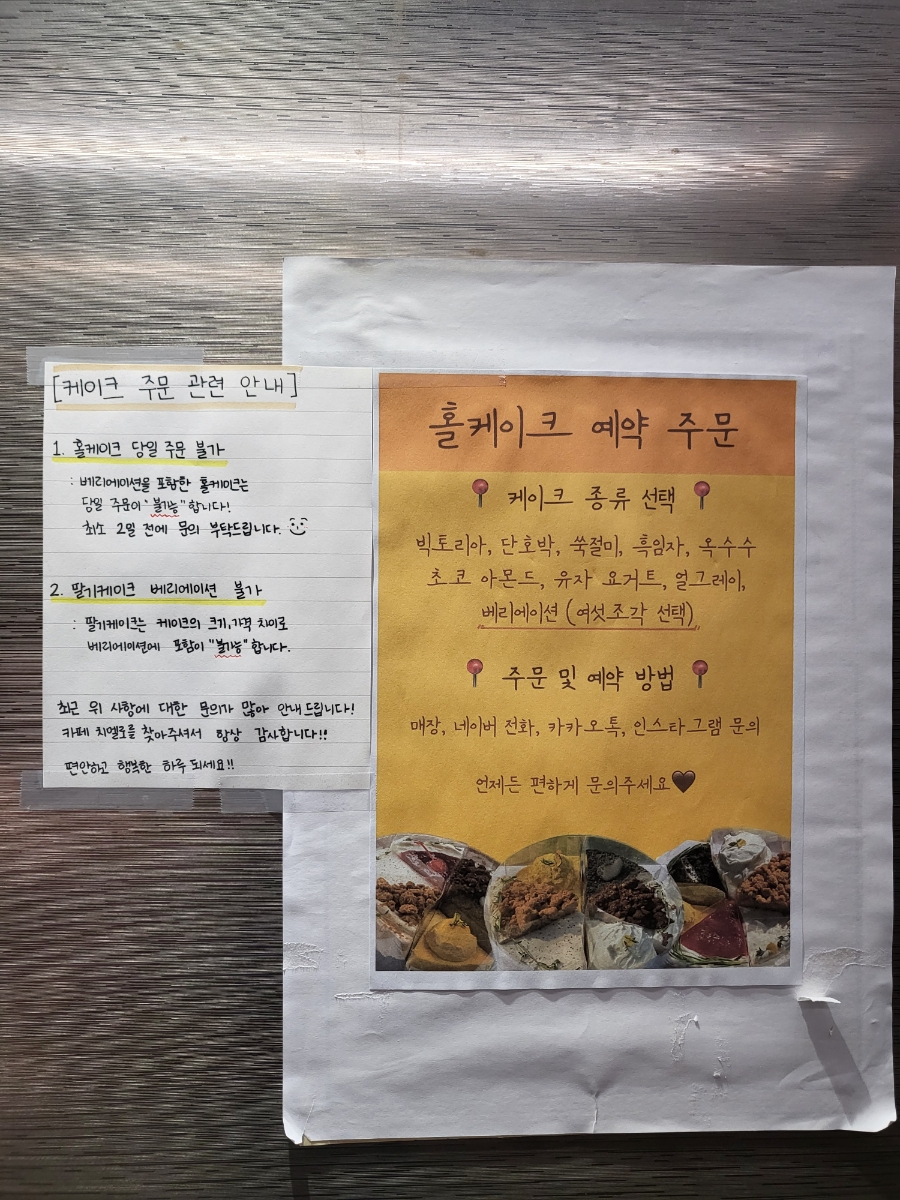 [케이크 주문 관련 안내]
1. 홀케이크 당일 주문 불가
: 베리에이션을 포함한 홀케이크는
당일 주문이 "불가능" 합니다!
최소 2일 전에 문의 부탁드립니다.
2. 딸기케이크 베리에이션 불가
: 딸기케이크는 케이크의 크기, 가격 차이로
베리에이션에 포함이 "불가능" 합니다.
최근 위 사항에 대한 문의가 많아 안내드립니다!
카페 치엘로를 찾아주셔서 항상 감사합니다!!
편안하고 행복한 하루 되세요!!
홀케이크 예약 주문
케이크 종류 선택
빅토리아, 단호박, 쑥절미, 흑임자, 옥수수
초코 아몬드, 유자 요거트, 얼그레이,
베리에이션 (여섯조각 선택)
주문 및 예약 방법
매장, 네이버 전화, 카카오톡, 인스타그램 문의
언제든 편하게 문의주세요🖤